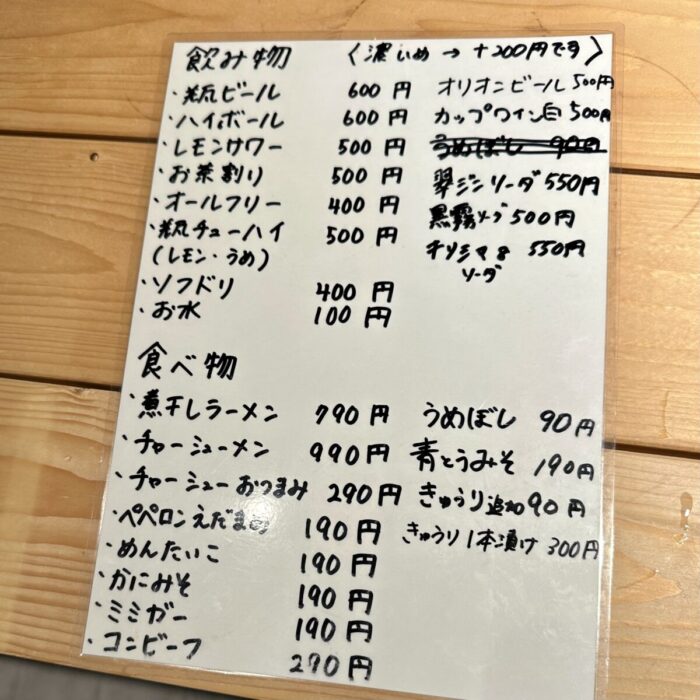 飲み物 〈濃いめ→+200円です〉
・瓶ビール 600円
・ハイボール 600円
・レモンサワー 500円
・お茶割り 500円
・オールフリー 400円
・瓶チューハイ 500円
(レモン・うめ)
・ソフドリ 400円
・お水 100円
オリオンビール 500円
カップワイン白 500円
うめぼし 90円
翠ジンソーダ 550円
黒霧ソーダ 500円
550円
ソーダ
食べ物
・煮干しラーメン 790円
・チャーシューメン 990円
・チャーシューおつまみ 290円
・ペペロンえだまめ 190円
・めんたいこ 190円
・かにみそ 190円
・ミミガー 190円
・コンビーフ 290円
うめぼし 90円
青とうみそ 190円
きゅうり追加 90円
きゅうり1本漬け 300円